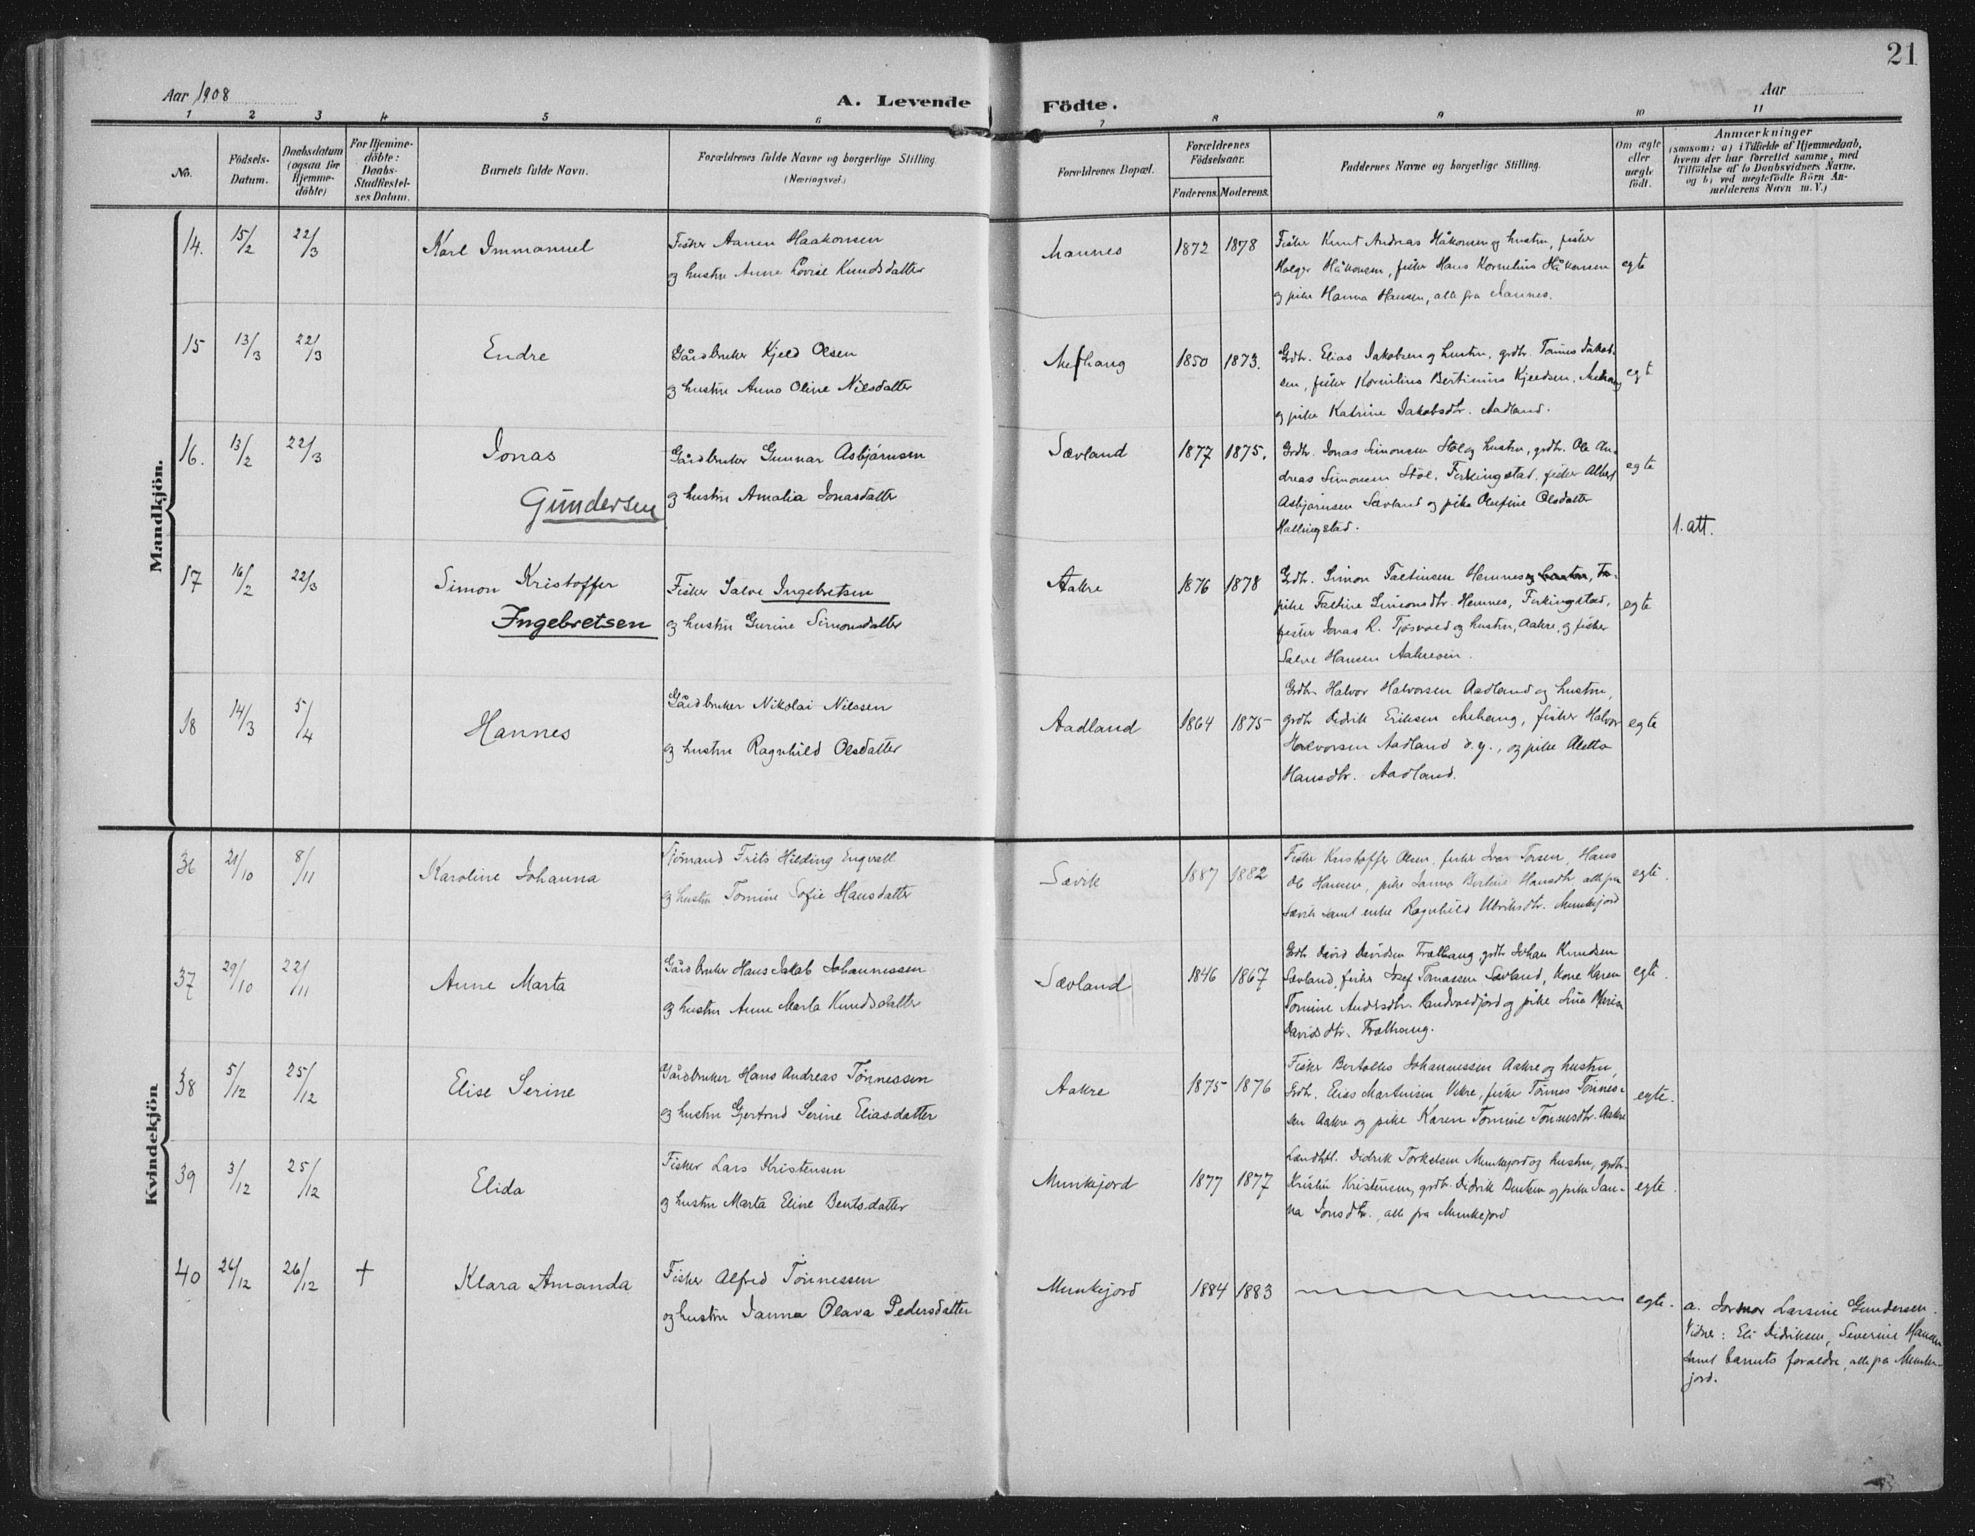 21
Aar 1908
A. Levende Födte.
Aar
1 2 3 4 5 6 7 8 9 10 11
No.
Födsels-
Datum.
Daabsdatum
(ogsaa for
Hjemme-
döbte)
For Hjemme-
döbte:
Daabs-
Stadfæstel-
ses Datum.
Barnets fulde Navn.
Forældrenes fulde Navne og borgerlige Stilling.
(Næringsvei.)
Forældrenes Bopæl.
Forældrenes
Födselsaar.
Faderens. Moderens.
Faddernes Navne og borgerlige Stilling.
Om ægte
eller
uægte
födt.
Anmærkninger
(saasom: a) i Tilfælde af Hjemmedaab,
hvem der har forrettet samme, med
Tilföielse af to Daabsvidners Navne,
og b) ved uægtefödte Börn An-
melderens Navn m. V.)
Mandkjön.
14. 15/2 22/3 Karl Immanuel
Fisker Aanen Haakonsen
og hustru Anne Lovise Knudsdatter
Mannes 1872 1878
Fisker Knut Andreas Håkonsen og hustru, fisker
Holger Håkonsen, fisker Hans Kornelius Håkonsen
og pike Hanna Hansen, alle fra Mannes.
egte
15 13/3 22/3 Endre
Gårdbruker Kjeld Olsen
og hustru Anna Oline Nilsdatter
Mehang 1850 1873.
Grdbr. Elias Jakobsen og hustru, grdbr. Tönnes Jakob-
sen, fisker Kornelius Bertinius Kjeldsen, Mehang
og pike Katrine Jakobsdtr. Aadland.
egt
16. 13/2 22/3 Jonas
Gundersen
Gårdbruker Gunnar Asbjørnsen
og hustru Amalia Jonasdatter
Sævland 1877 1875.
Grdbr. Jonas Simonsen Stöl og hustru, grdbr. Ole An-
dreas Simonsen Stöl, Ferkingstad, fisker Alfred
Asbjørnsen Sævland og pike Olufine Olsdatter
Hallingstad.
egte
1. att.
17 16/2 22/3 Simon Kristoffer
Ingebretsen
Fisker Salve Ingebretsen
og hustru Gurine Simonsdatter
Aakre 1876 1878
Grdbr. Simon Faltinsen Hemnes
pike Faltine Simonsdtr. Hemnes, Ferkingstad,
fisker Jonas R. Tjøsvold og hustru, Aakre, og fisker
Salve Hansen Aakreøen.
egte
18 14/3 5/4 Hannes
Gårdbruker Nikolai Nilssen
og hustru Ragnhild Olsdatter
Aadland 1864 1875
Grdbr. Halvor Halvorsen Aadland og hustru,
grdbr Didrik Eriksen Mehang, fisker Halvor
Halvorsen Aadland d.y., og pike Aletta
Hansdtr. Aadland.
egte
Kvindekjön
36 21/10 8/11 Karoline Johanna
Sjømand Frits Hilding Engvall
og hustru Tomine Sofie Hansdatter
Sævik 1887 1882
Fisker Kristoffer Olsen, fisker Ivar Torsen, Hans
Ole Hansen, pike Janna Bertine Hansdtr alle fra
Sævik samt enke Ragnhild Ulriksdtr. Munkejord
egte.
37 29/10 22/11 Anne Marta
Gårdbruker Hans Jakob Johannessen
og hustru Anne Marta Knudsdatter
Sævland 1846 1867
Grdb David Davidsen Trælhaug, grdb Johan Knudsen
Sævland, fisker Josef Tomassen Sævland, Kone Karen
Tomine Andersdtr. Sandvoldjord og pike Lina Maria
Davidsdtr. Trælhaug.
egte.
38 5/12 25/12 Elise Serine
Gårdbruker Hans Andreas Tönnessen
og hustru Gjertrud Serine Eliasdatter
Aakre 1875 1876
Fisker Bertolles Johannessen Aakre og hustru,
Grdb. Elias Martinsen Vikre, fisker Tönnes Tönnes-
sen Aakre og pike Karen Tomine Tönnesdtr. Aakre
egte.
39 3/12 25/12 Elida
Fisker Lars Kristensen
og hustru Marta Eline Bentsdatter
Munkejord 1877 1877
Landhdl. Didrik Torkelsen Munkejord og hustru, grdb.
Kristen Kristensen, grdb. Didrik Bentsen og pike Jan-
na Jonsdtr., alle fra Munkejord
egte.
40 26/12 26/12 + Klara Amanda
Fisker Alfred Tönnessen
og hustru Janna Olava Pedersdatter
Munkejord 1884 1883
egte.
a. Jormor Larsine Gundersen.
Vidne: Eli Didriksen, Severine Hansen
samt barnets forældre, alle fra Munke-
jord.